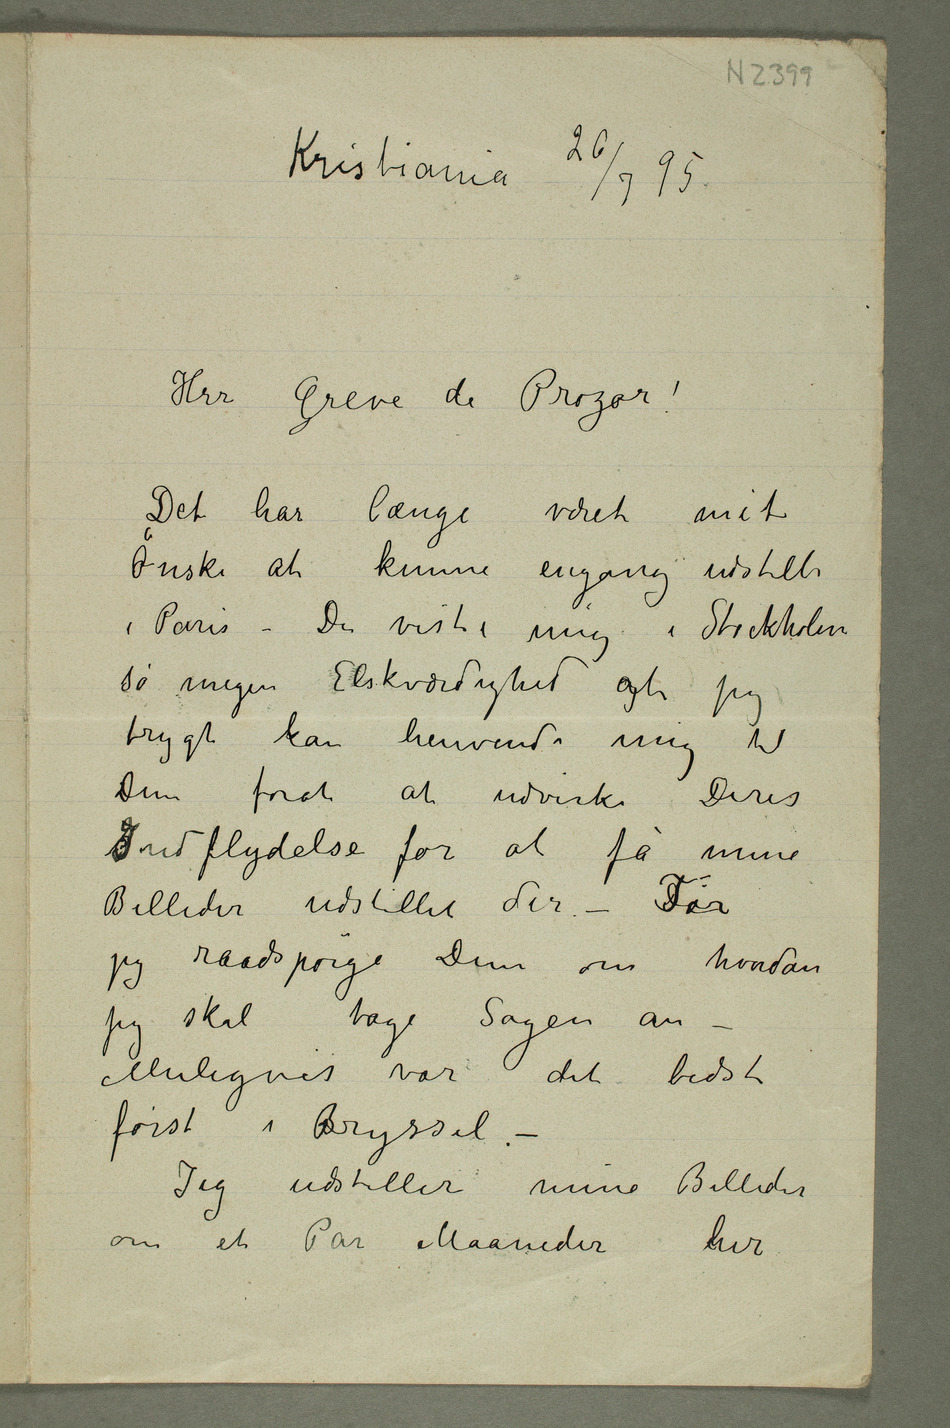 N 2399
Kristiania 26/7 95.
Herr Greve de Prozor!
Det har længe været mit
Ønske at kunne engang udstille
i Paris – De viste mig i Stockholm
så megen Elskværdighed at jeg
trygt kan henvende mig til
Dem forat at udvirke Deres
Indflydelse for at få mine
Billeder udstillet der. – Tör
jeg raadspörge Dem om hvordan
jeg skal tage Sagen an –
Muligvis var det bedst
först i Bryssel. –
Jeg udstiller mine Billeder
om et Par Maaneder her